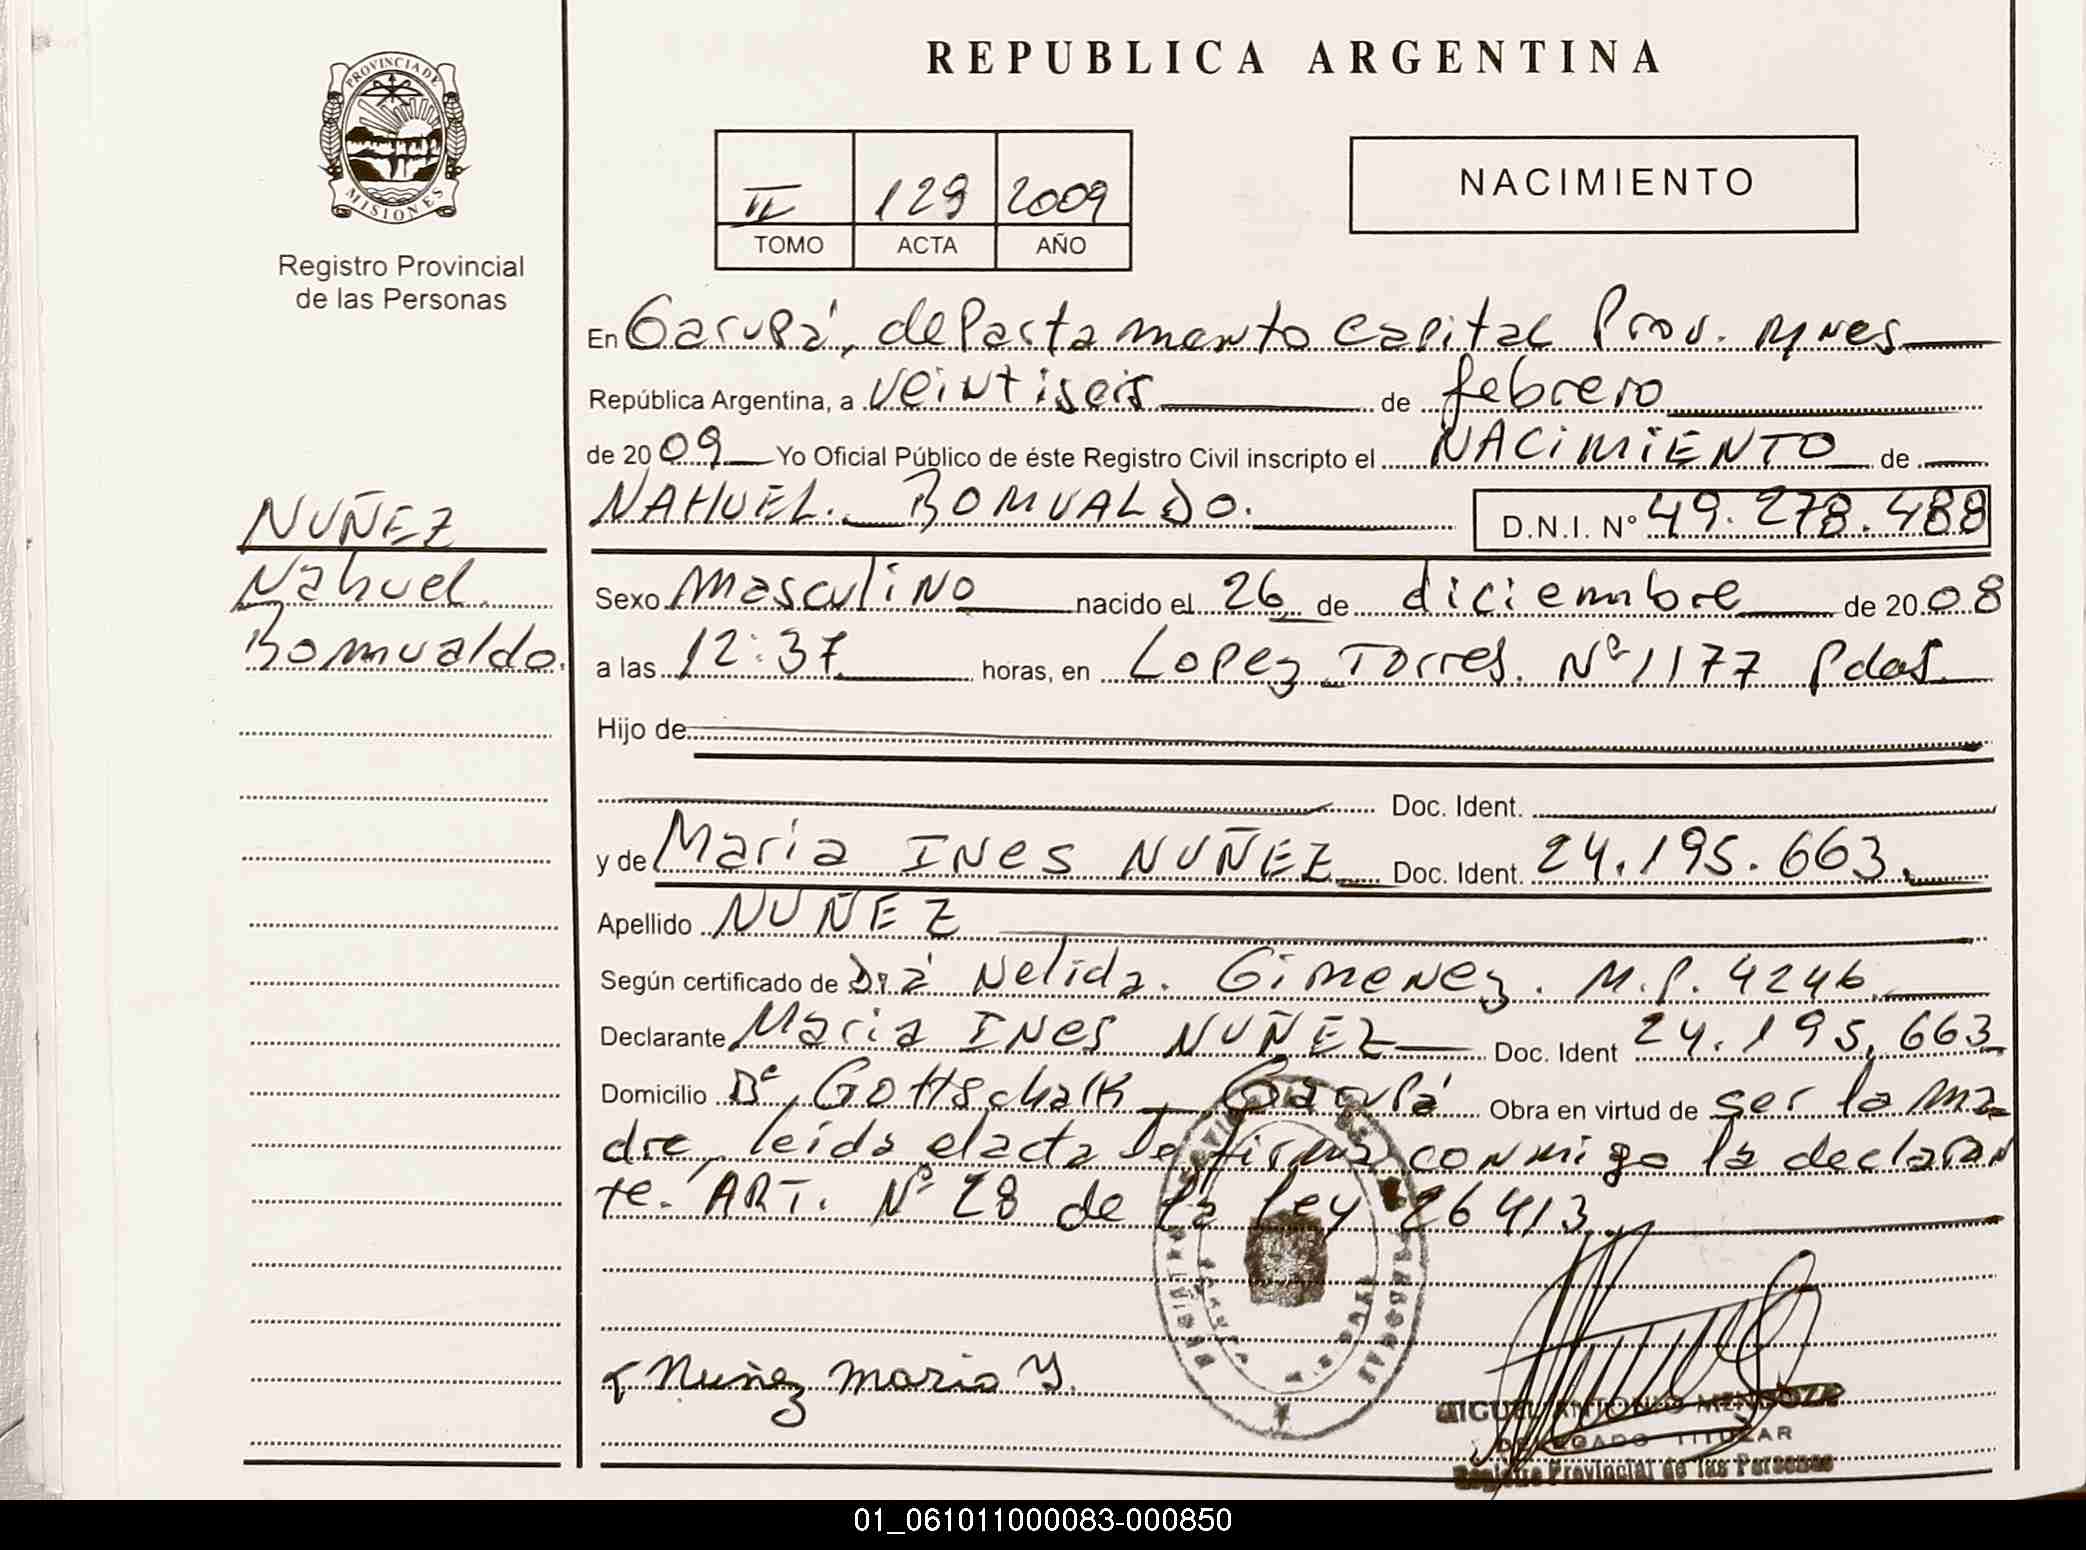 REPUBLICA ARGENTINA
PROVINCIA DE
MISIONES
Registro Provincial
de las Personas
II 129 2009
TOMO ACTA AÑO
NACIMIENTO
En Garupá, departamento Capital Prov. Mnes
República Argentina, a veintiseis de febrero
de 2009 Yo Oficial Público de éste Registro Civil inscripto el NACIMIENTO de
NAHUEL. ROMUALDO. D.N.I. Nº 49.278.488
NUÑEZ
Nahuel
Romualdo.
Sexo Masculino nacido el 26 de diciembre de 2008
a las 12:37 horas, en Lopez Torres. Nº 1177 Pdas.
Hijo de
Doc. Ident.
y de Maria INes NUÑEZ Doc. Ident. 24.195.663.
Apellido NUÑEZ
Según certificado de Drá Nelida. Gimenez. M.P. 4246.
Declarante Maria INes NUÑEZ Doc. Ident 24.195.663
Domicilio Bº Gottschalk Garupá Obra en virtud de ser la ma
dre, leida el acta la firma conmigo la declaran
te. ART. Nº 28 de la ley 26413.
Nuñez Maria Y.
MIGUEL ANTONIO MENDOZA
DELEGADO TITULAR
Registro Provincial de las Personas
01_061011000083-000850